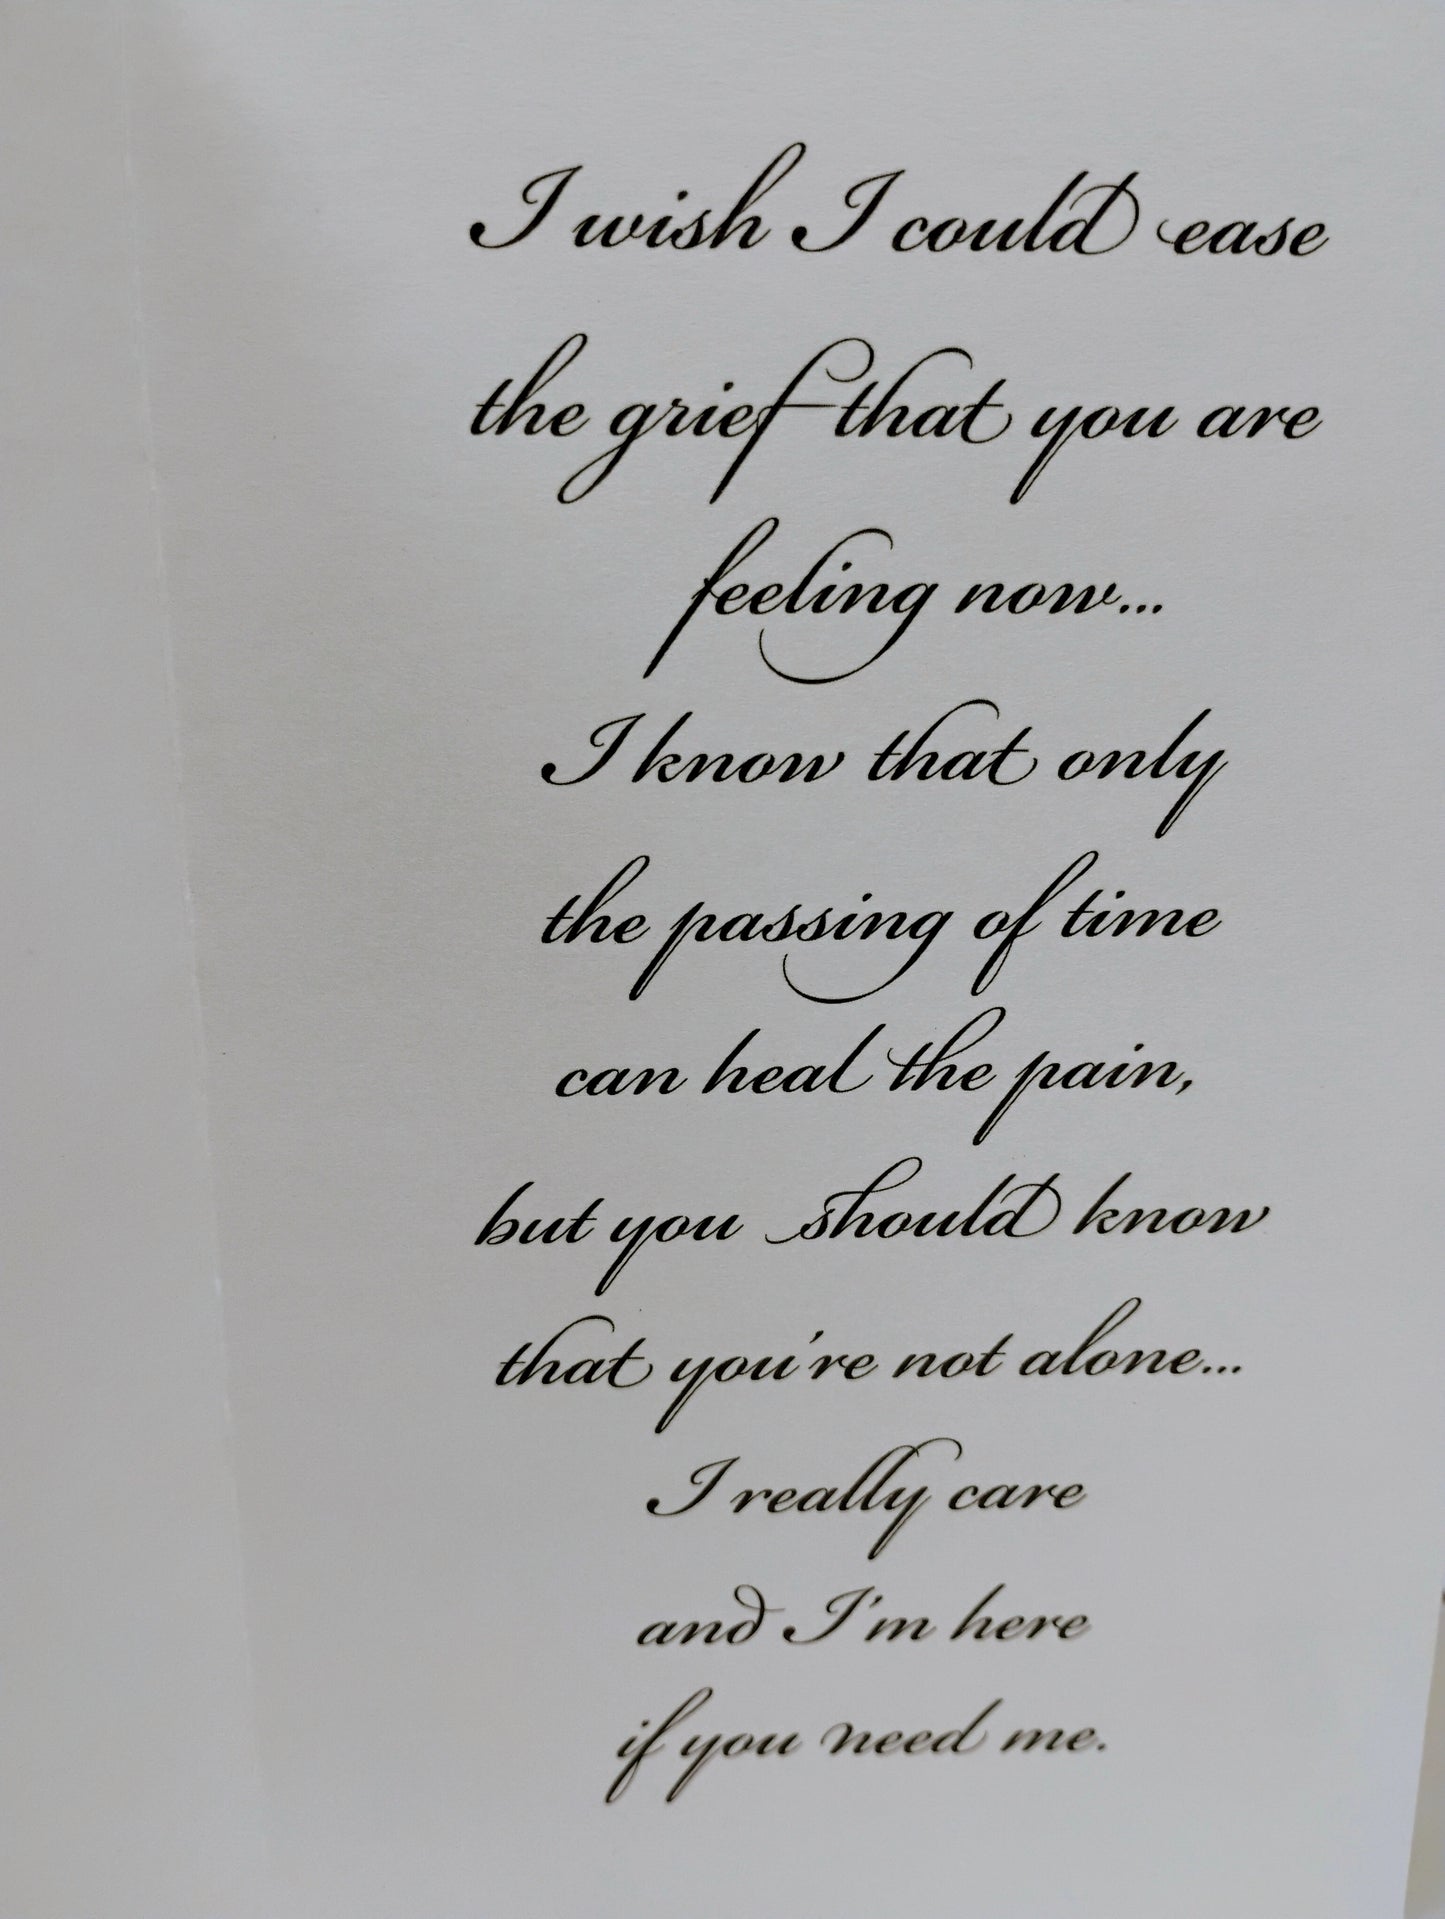 I wish I could ease
the grief that you are
feeling now...
I know that only
the passing of time
can heal the pain,
but you should know
that you're not alone...
I really care
and I'm here
if you need me.